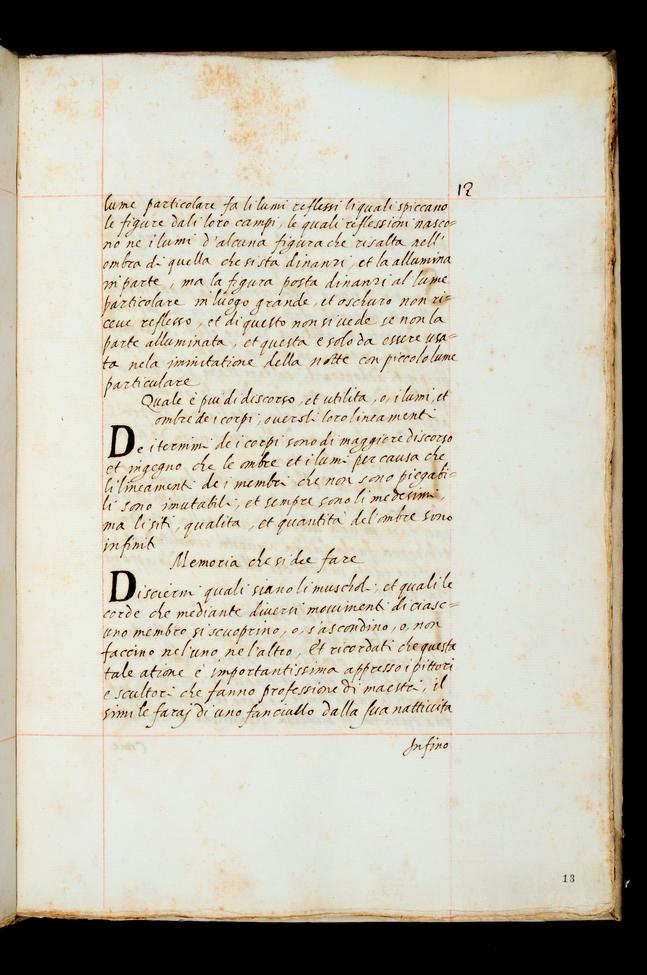 12
lume particolare fa li lumi reflessi li quali spiccano
le figure dali loro campi, le quali reflessioni nasco=
no ne i lumi d'alcuna figura che risalta nell'
ombra di quella che si sta dinanzi, et la allumina
in parte, ma la figura posta dinanzi al lume
particolare in luogo grande, et oschuro non ri=
ceve reflesso, et di questo non si vede se non la
parte alluminata, et questa è solo da essere usa=
ta nela immitatione della notte con piccolo lume
particulare
Quale è piu di discorso, et utilita, o, i lumi, et
ombre de i corpi, overo li loro lineamenti
De i termini de i corpi sono di maggiere discorso
et ingegno che le ombre et i lumi per causa che
li lineamenti de i membri che non sono piegabi=
li sono imutabili, et sempre sono li medesimi
ma li siti, qualita, et quantita del ombre sono
infiniti
Memoria che si dee fare
Discierni quali siano li muscholi, et quali le
corde che mediante diversi movimenti di ciasc=
uno membro si scuoprino, o, s'ascondino, o, non
faccino ne l'uno, ne l'altro, Et ricordati che questa
tale atione è importantissima appresso i pittori
e scultori che fanno professione di maestri, il
simile faraj di uno fanciullo dalla sua nattivita
Infino
13